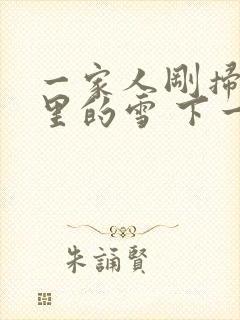 一家人剛掃
里的雪 下一
朱誦賢